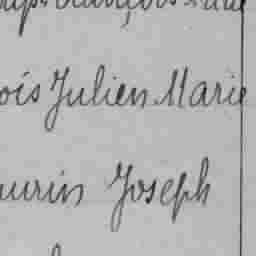 ois Julien Marie
urin Joseph